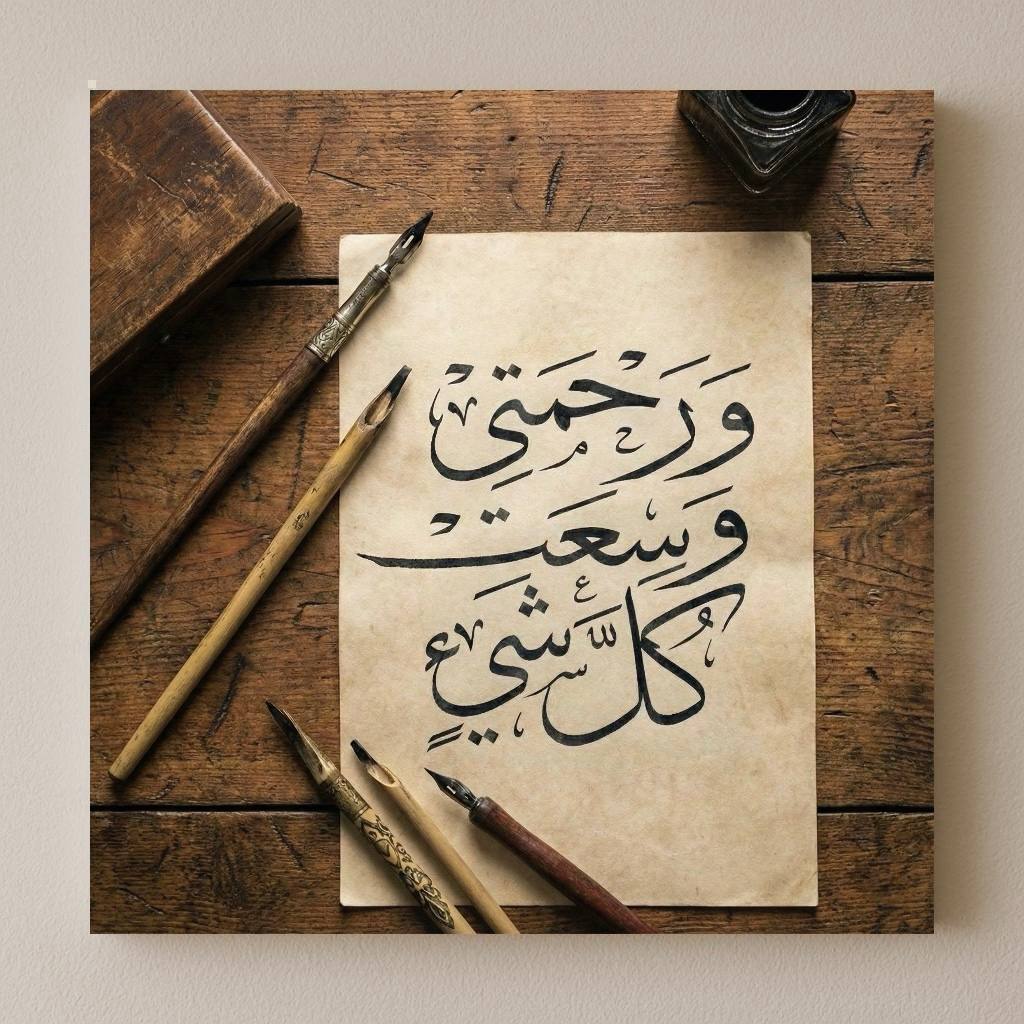 وَرَحْمَتِيْ
وَسِعَتْ
كُلَّ شَيْءٍ